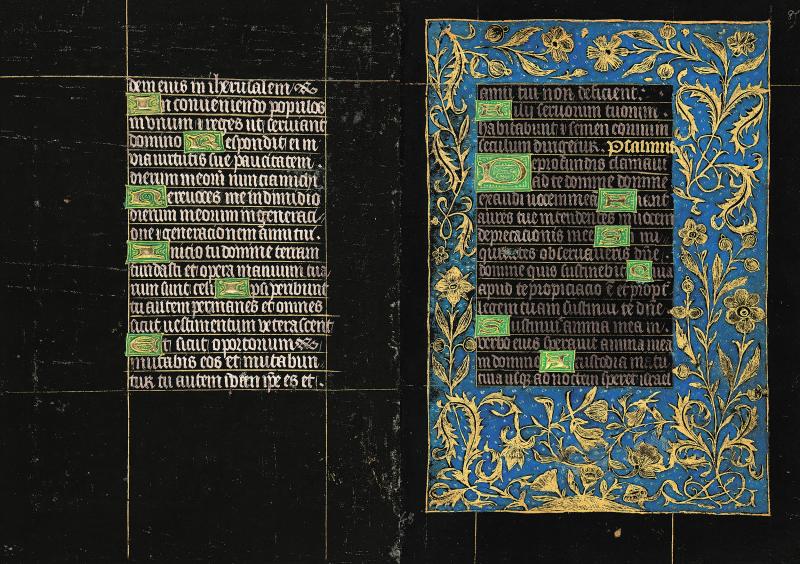 dem eius in iherusalem
In conueniendo populos
in vnum ⁊ reges ut seruiant
domino Respondit ei in
via uirtutis sue paucitatem
dierum meorū nuncia michi
Ne reuoces me in dimidio
dierum meorum in generaci
one ⁊ generationem anni tui.
Inicio tu domine terram
fundasti et opera manuum tua
rum sunt celi Ipsi peribunt
tu autem permanes et omnes
sicut uestimentum veterascent
Et sicut oportorium
mutabis eos et mutabun
tur tu autem idem ipse es et
anni tui non deficient.
Filij seruorum tuorum
habitabunt ⁊ semen eorum in
seculum dirigetur. Psalmus
De profundis clamaui
ad te domine domine
exaudi uocem meam Fiant
aures tue intendentes in uocem
deprecationis mee Si ini
quitates obseruaueris
domine quis sustinebit Quia
apud te propiciacio ē et propt'
legem tuam sustinui te dn̄e
Sustinuit anima mea in
verbo eius sperauit anima mea
in domino A custodia matu
tina usq; ad noctem speret israel